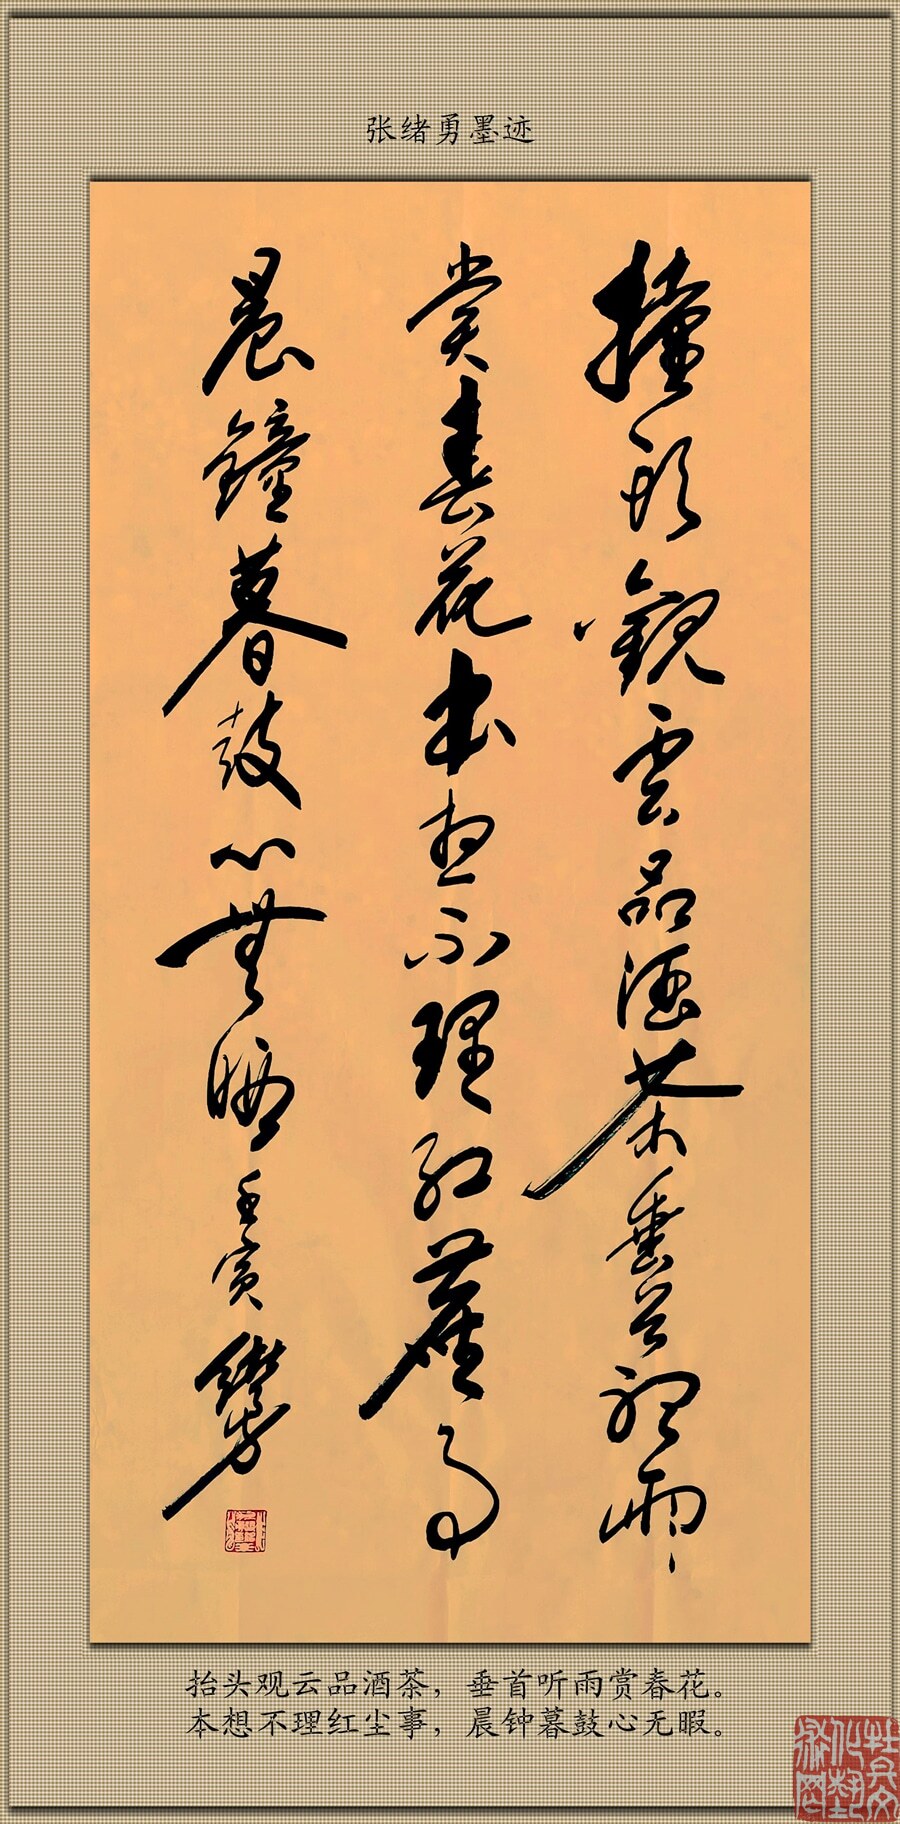 张绪勇墨迹
擡頭觀雲品酒茶垂首聽雨
賞春花本想不理紅塵事
晨鐘暮鼓心無暇
壬寅緒勇
抬头观云品酒茶，垂首听雨赏春花。
本想不理红尘事，晨钟暮鼓心无暇。